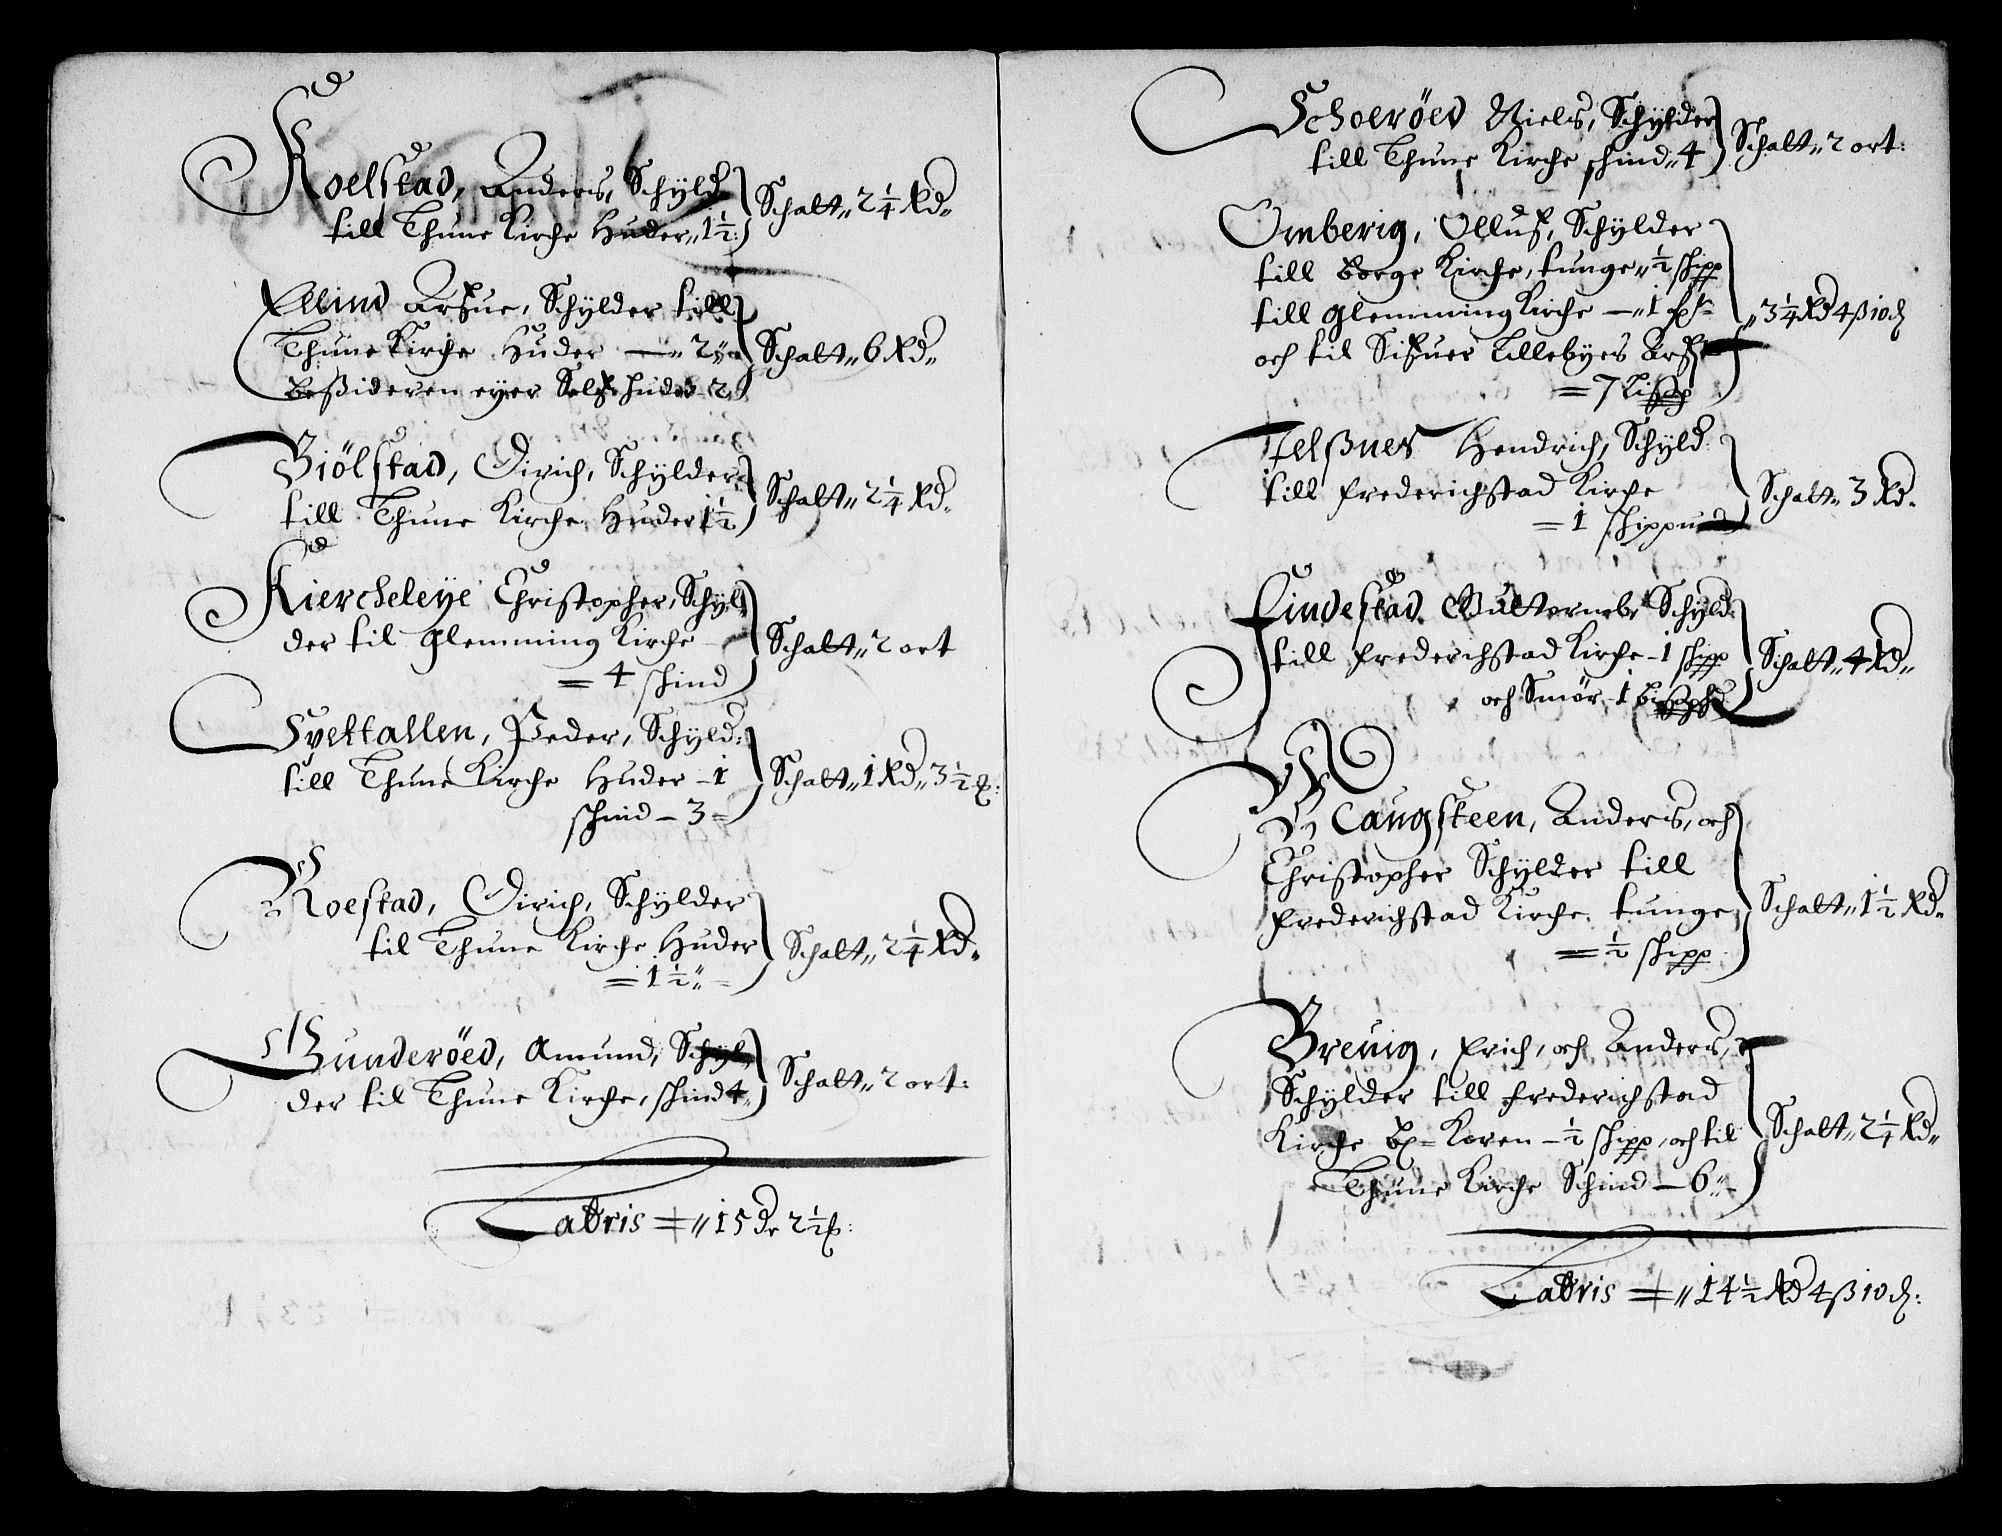 Koelstad, Anders, Schyld
till Thune Kirche Huder,, 1½:
Schatt,, 2¼ Rd,,
Ellind Arfue, Schylder till
Thune Kirche Huder — 2,,
beßideren eyer Self huder 2
Schatt,, 6 Rd,,
Biölstad, Dirich, Schylder
till Thune Kirche Huder 1½
Schatt,, 2¼ Rd,,
Kiercheleye Christopher, Schyl
der til Glemming Kirche
= 4 schind
Schatt,, 2 ort
Svettallen, Peder, Schyld:
till Thune Kirche Huder – 1
schind – 3 =
Schatt,, 1 Rd,, 3½ ß:
Roestad, Dirich, Schylder
til Thune Kirche Huder
= 1½,, =
Schatt,, 2¼ Rd,,
Gunderöed, Amund, Schyl
der til Thune Kirche, schind 4,,
Schatt,, 2 ort:
Latris =,, 15 dr 2½ ß:
Schoeröed Niels, Schylder
till Thune Kirche schind,, 4
Schatt,, 2 ort:
Omberig, Olluf, Schylder
till Borge Kirche, tunge,, ½ schpp
till Glemming Kirche —,, 1
och til Sifuer Lillebyes Arf
= 7 Lispp
,, 3¼ Rd 4 ß 10 d
Felßner Hendrich, Schyld:
till Frederichstad Kirche
= 1 schippund
Schatt,, 3 Rd,,
Findestad Schyld:
till Frederichstad Kirche – 1 schpp
och Smör – 1 bispphd
Schatt,, 4 Rd,,
Caugsteen, Anders, och
Christopher Schylder till
Frederichstad Kirche, tunge
= ½ schipp
Schatt,, 1½ Rd,,
Breuig, Erich, och Anders,
Schylder till Frederichstad
Kirche Koren – ½ schipp, och til
Thune Kirche Schind – 6,,
Schatt,, 2¼ Rd,,
Latris =,, 14½ Rd 4 ß 10 d: